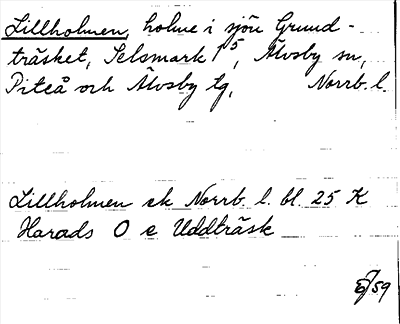 Lillholmen, holme i sjön Grund-
träsket, Selsmark 1⁵, Älvsby sn,
Piteå och Älvsby tg, Norrb. l.
Lillholmen ek Norrb. l. bl. 25 K
Harads O e Uddträsk
59